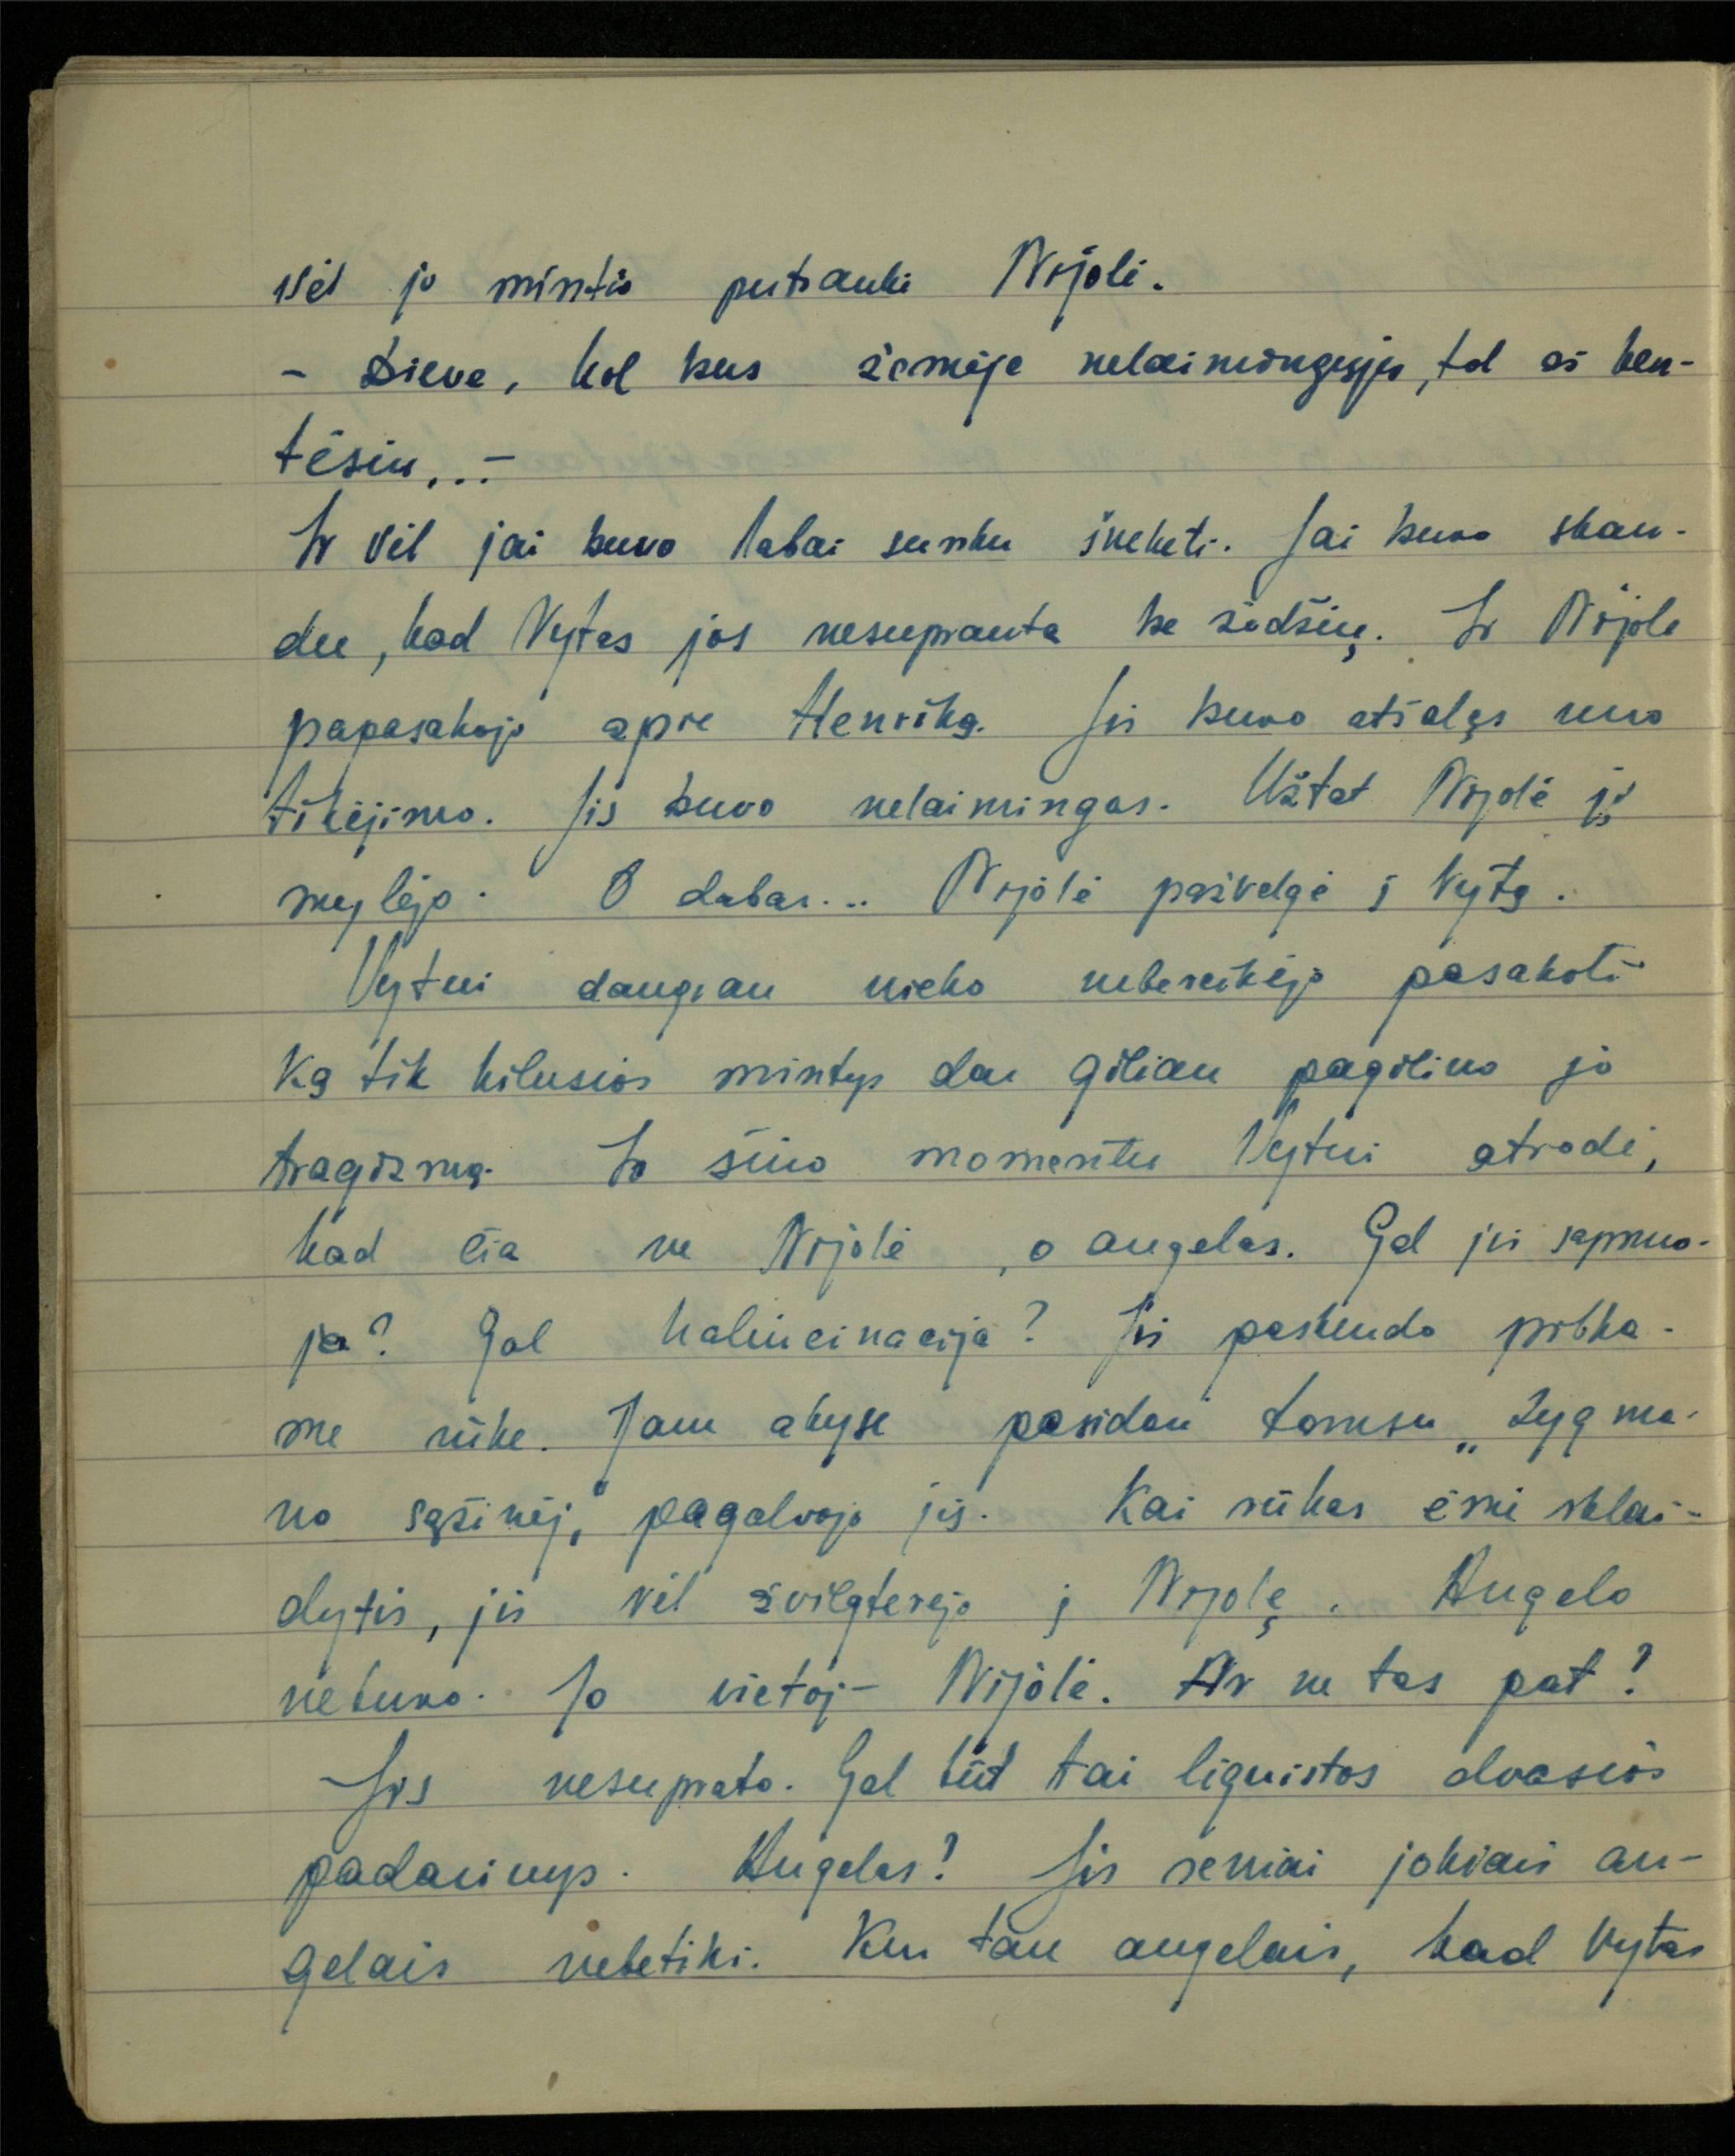 Vėl jo mintis pertraukė Nijolė.
- Dieve, kol bus žemėje nelaimingųjų, tol aš ken-
tėsiu...-
Ir vėl jai buvo labai sunku šnekėti. Jai buvo skau-
du, kad Vytas jos nesupranta be žodžių. Ir Nijolė
papasakojo apie Henriką. Jis buvo atšalęs nuo
tikėjimo. Jis buvo nelaimingas. Užtat Nijolė jį
mylėjo. O dabar... Nijolė pažvelgė į Vytą.
Vytui daugiau nieko nebereikėjo pasakoti
Ką tik kilusios mintys dar giliau pagilino jo
tragizmą. Ir šiuo momentu Vytui atrodė,
kad čia ne Nijolė, o angelas. Gal jis sapnuo-
ja? Gal haliucinacija? Jis paskendo pilka-
me rūke. Jam akyse pasidarė tamsu „Zygma-
no sąžinėj," pagalvojo jis. Kai rūkas ėmė sklai-
dytis, jis vėl žvilgterėjo į Nijolę. Angelo
nebuvo. Jo vietoj - Nijolė. Ar ne tas pat?
Jis nesuprato. Gal būt tai liguistos dvasios
padarinys. Angelas? Jis seniai jokiais an-
gelais nebetiki. Kur tau angelais, kad Vytas